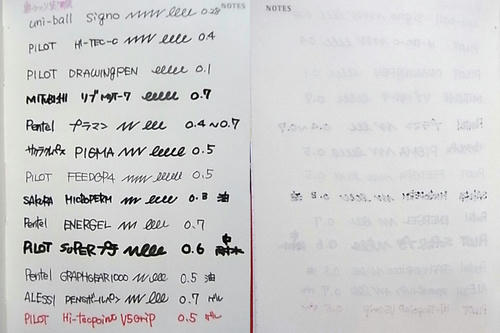 NOTES
uni-ball Signo 0.28
PILOT HI-TEC-C 0.4
PILOT DRAWINGPEN 0.1
MITSUBISHI 0.7
Pentel プラマン 0.4~0.7
サクラクレパス PIGMA 0.5
PILOT 0.5
SAKURA MICROPERM 0.3 油
Pentel ENERGEL 0.7
PILOT SUPER プチ 0.6 中
Pentel GRAPHGEAR1000 0.5 油
ALESSI 0.7
PILOT Hi-tecpoint V5Grip 0.5
NOTES